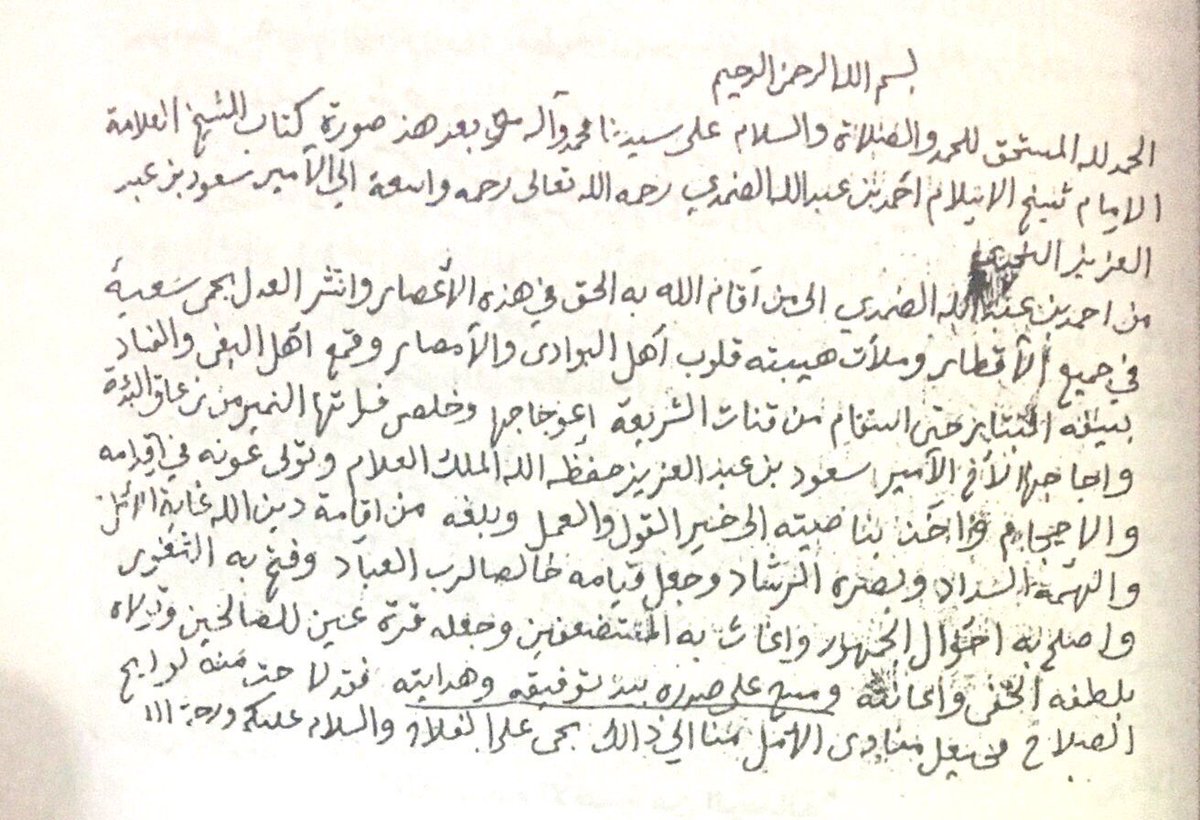 بسم الله الرحمن الرحيم
الحمد لله المستحق للحمد والصلاة والسلام على سيدنا محمد وآله وبعد هذ صورة كتاب الشيخ العلامة
الامام شيخ الاسلام احمد بن عبد الله الضمدي رحمه الله تعالى رحمه واسعة الى الأمير سعود بن عبد
العزيز النجدي
من احمد بن عبد الله الضمدي الى من أقام الله به الحق في هذه الأعصار وانتشر العدل بحمى سعيه
في جميع الأقطار وملأت هيبته قلوب أهل البوادى والأمصار وقمع اهل البغى والفساد
بسيفه البتار حتى استقام من قنات الشريعة إعوجاجها وخلص فراتها النمير من زعاق البدعة
واجاجها الأخ الأمير سعود بن عبد العزيز حفظه الله الملك العلام وتولى عونه في إقدامه
والاحجام وأخذ بناصيته الى خير القول والعمل وبلغه من اقامة دين الله غاية الأمل
والهمه السداد وبصره الرشاد وجعل قيامه خالصا لرب العباد وفتح به الثغور
واصلح به احوال الجمهور واغاث به المستضعفين وجعله قرة عين للصالحين وتولاه
بلطفه الخفى واعانته ومسح على صدره بيد توفيقه وهدايته فقد لاحت منه لوايح
الصلاح منادى الأمل منا الى ذالك بحى على الفلاح والسلام عليكم ورحمة الله